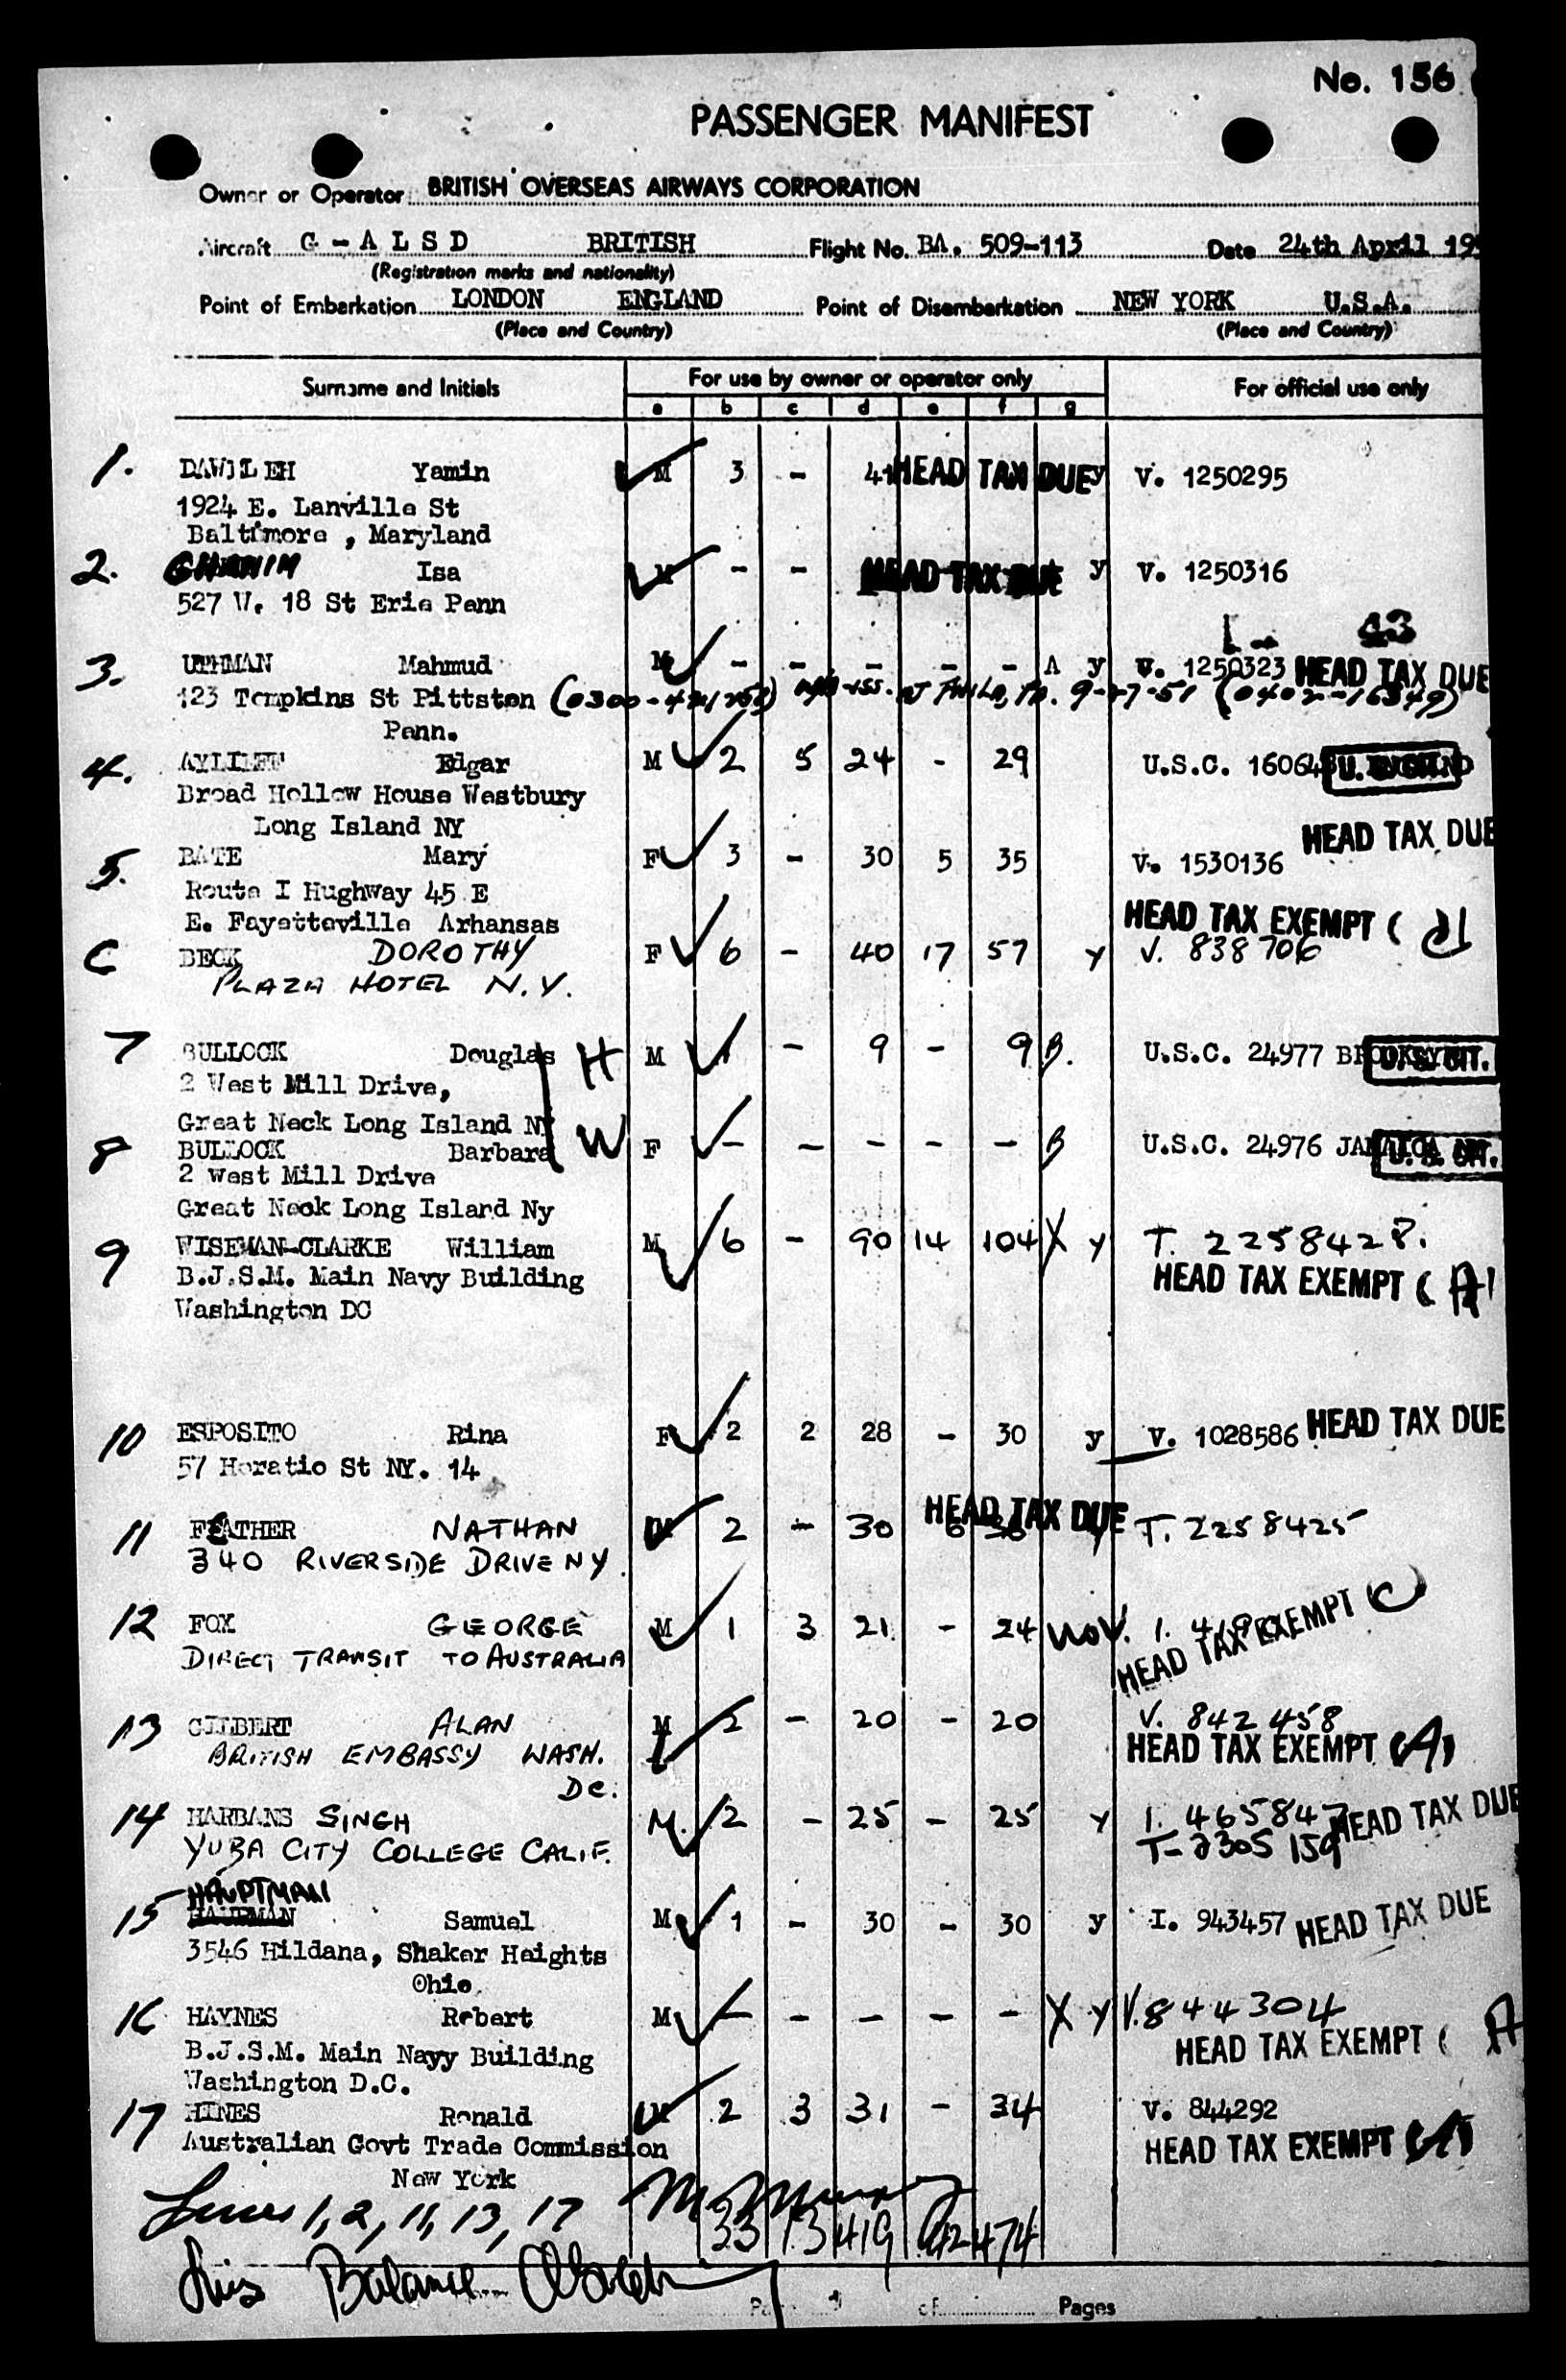 No. 156
PASSENGER MANIFEST
Owner or Operator BRITISH OVERSEAS AIRWAYS CORPORATION
Aircraft G - A L S D BRITISH Flight No. BA. 509-113 Date 24th April 19
(Registration marks and nationality)
Point of Embarkation LONDON ENGLAND Point of Disembarkation NEW YORK U.S.A.
(Place and Country) (Place and Country)
Surname and Initials For use by owner or operator only For official use only
a b c d e f g
1. DAWILEH Yamin M 3 - 41 HEAD TAX DUE y V. 1250295
1924 E. Lanville St
Baltimore , Maryland
2. GHANIM Isa M - - HEAD TAX DUE y V. 1250316
527 W. 18 St Erie Penn
3. UTHMAN Mahmud M - - - - - A y V. 1250323 HEAD TAX DUE
123 Tompkins St Pittston PHILA, PA. 9-27-51 (0402-16349)
Penn.
4. AYLIFF Edgar M 2 5 24 - 29 U.S.C.
Broad Hollow House Westbury
Long Island NY
HEAD TAX DUE
5. BATE Mary F 3 - 30 5 35 V. 1530136
Route I Hughway 45 E
E. Fayetteville Arhansas
HEAD TAX EXEMPT (
BECK DOROTHY F 6 - 40 17 57 y V. 838706
PLAZA HOTEL N.Y.
7 BULLOCK Douglas H M 1 - 9 - 9 B. U.S.C. 24977 U.S. CIT.
2 West Mill Drive,
Great Neck Long Island NY
8 BULLOCK Barbara W F - - - - - B U.S.C. 24976 JAMAICA U.S. CIT.
2 West Mill Drive
Great Neck Long Island Ny
9 WISEMAN-CLARKE William M 6 - 90 14 104 X y T. 2258428.
B.J.S.M. Main Navy Building HEAD TAX EXEMPT ( A)
Washington DC
10 ESPOSITO Rina F 2 2 28 - 30 y V. 1028586 HEAD TAX DUE
57 Horatio St NY. 14
11 FEATHER NATHAN M 2 - 30 6 36 HEAD TAX DUE y T. 2258425
340 RIVERSIDE DRIVE NY.
12 FOX GEORGE M 1 3 21 - 24
DIRECT TRANSIT TO AUSTRALIA HEAD TAX EXEMPT C
13 GILBERT ALAN M 2 - 20 - 20 V. 842458
BRITISH EMBASSY WASH. HEAD TAX EXEMPT (A)
DC.
14 HARBANS SINGH M. 2 - 25 - 25 y I. 465847 HEAD TAX DUE
YUBA CITY COLLEGE CALIF. T-2305159
HAUPTMAN
15 HAUPMAN Samuel M 1 - 30 - 30 y I. 943457 HEAD TAX DUE
3546 Hildana, Shaker Heights
Ohio
16 HAYNES Robert M - - - - - X y V. 844304
B.J.S.M. Main Navy Building HEAD TAX EXEMPT ( A
Washington D.C.
17 HINES Ronald M 2 3 31 - 34 V. 844292
Australian Govt Trade Commission HEAD TAX EXEMPT (A)
New York
Lines 1, 2, 11, 13, 17
33 13 419 42 474
Balance
of Pages